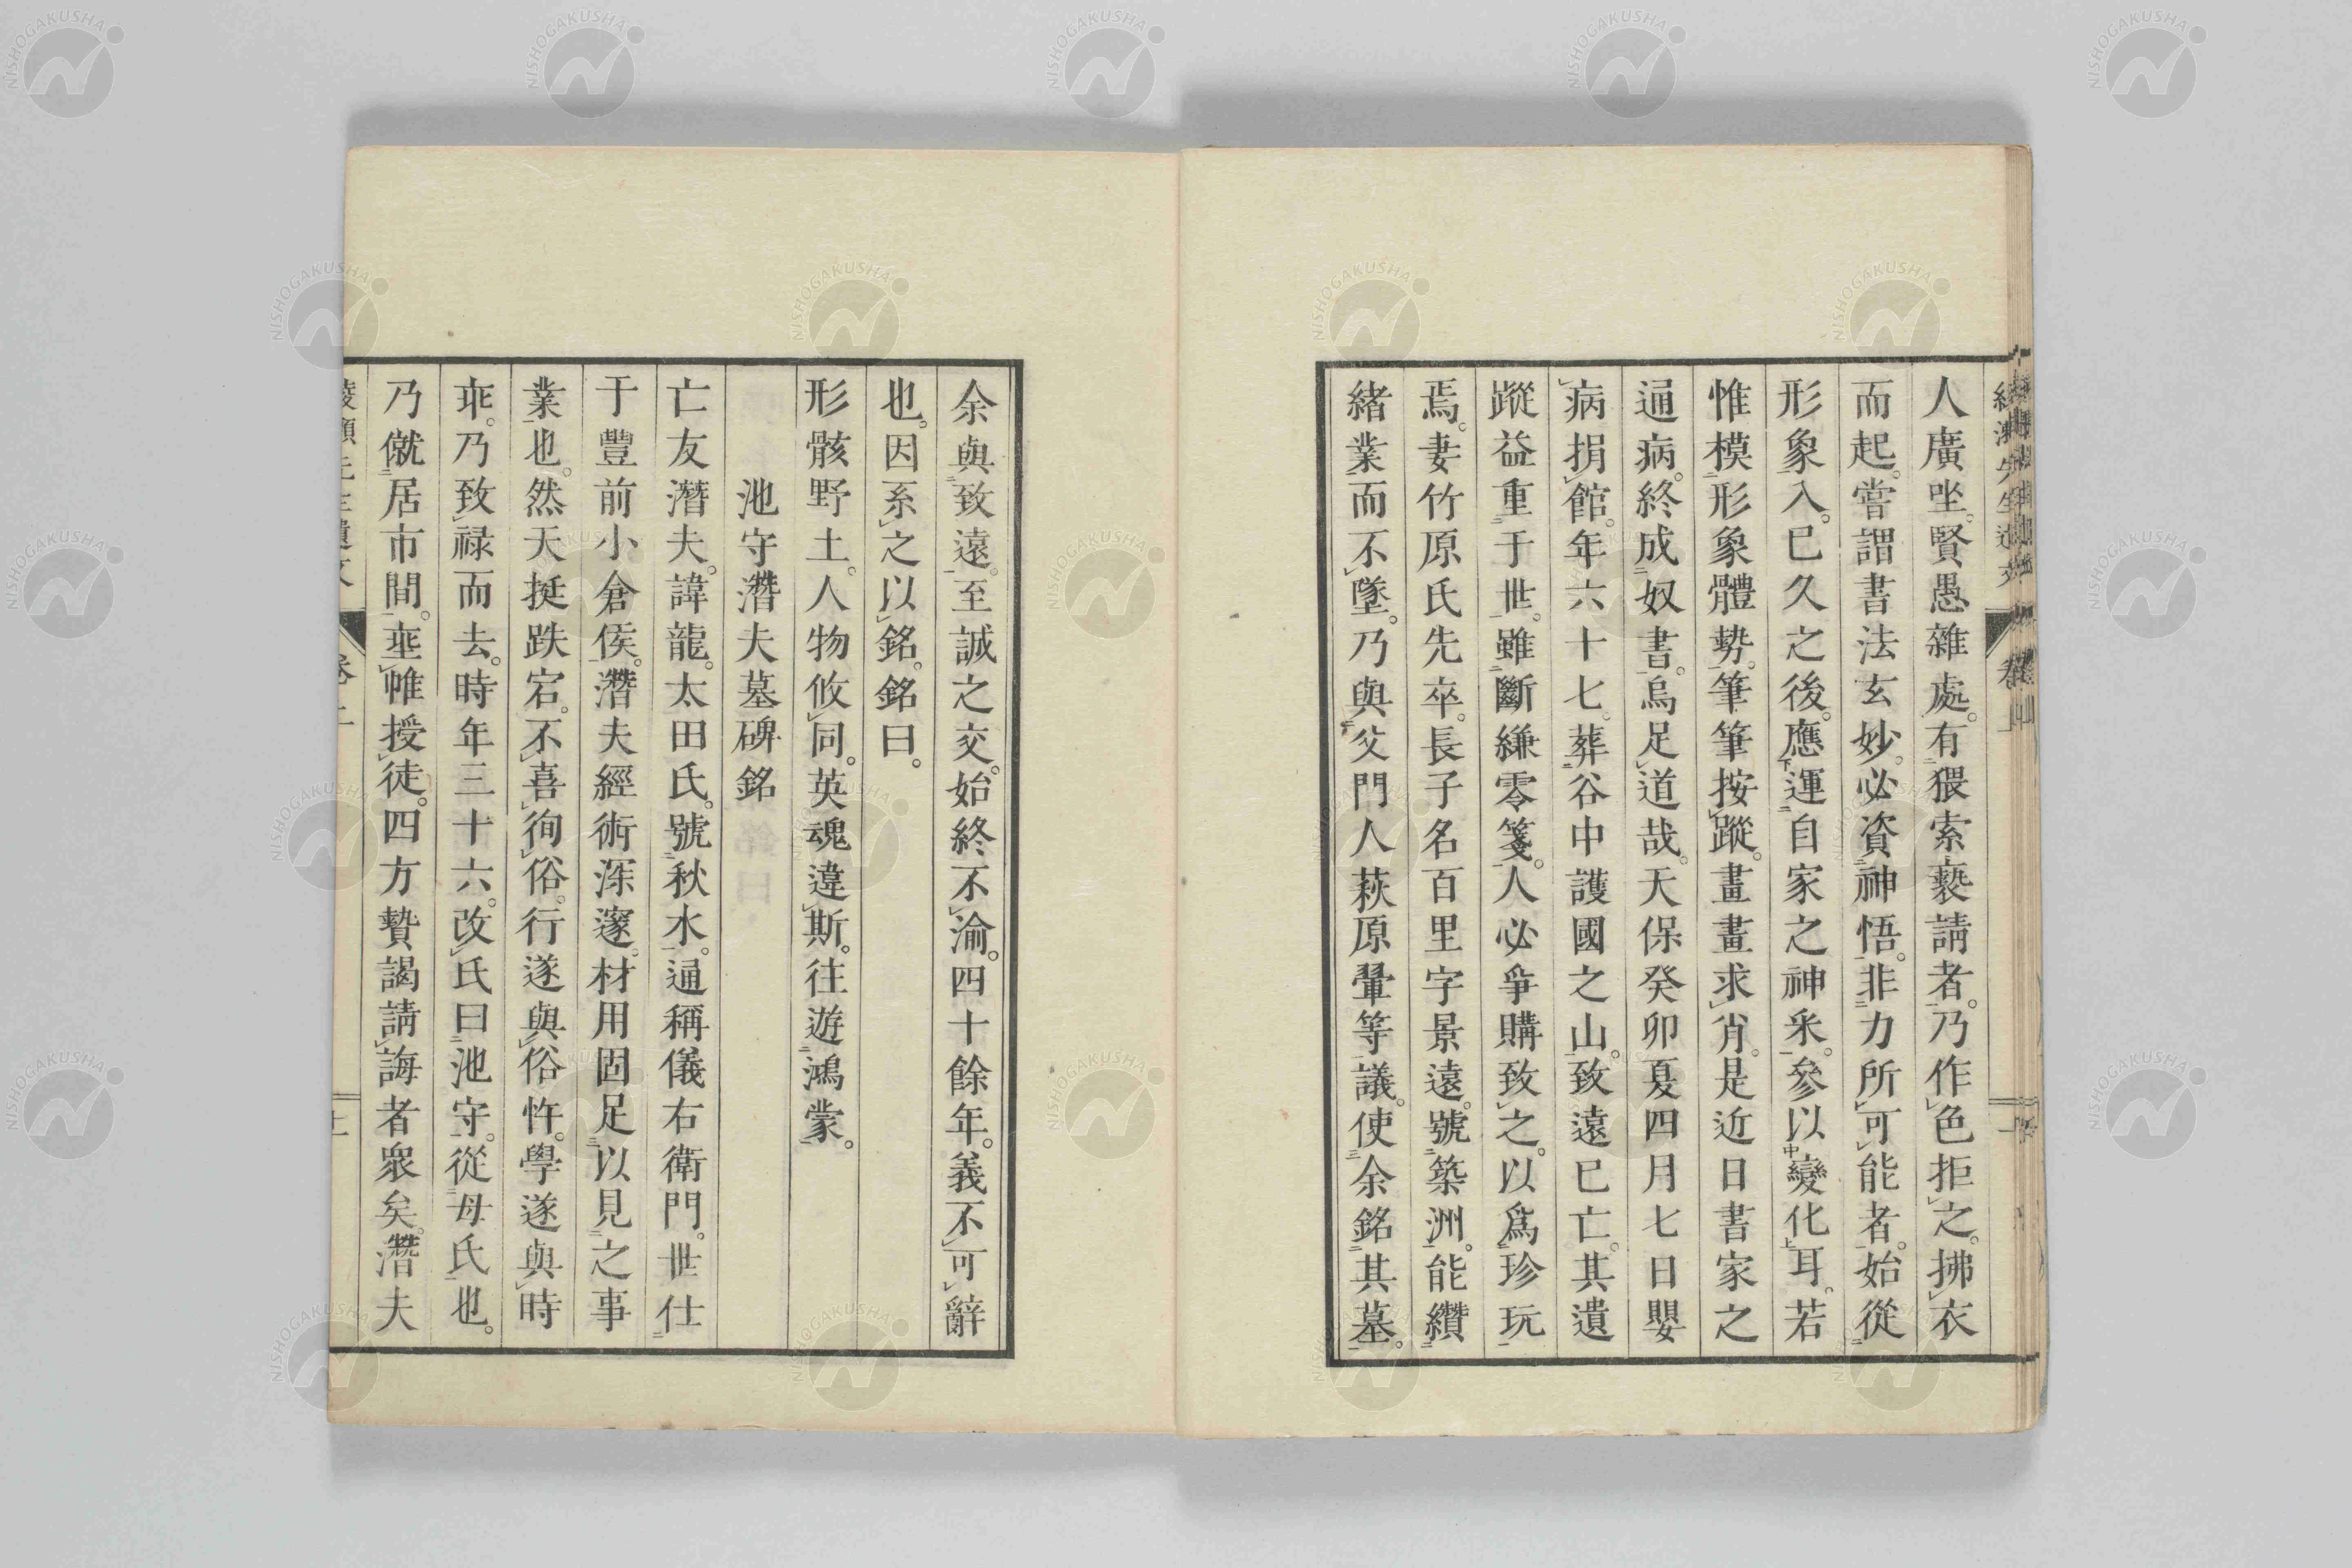 人廣坐。賢愚雜處。有猥索褻請者。乃作色拒之。拂衣
而起。嘗謂書法玄妙。必資神悟。非力所可能者。始從
形象入。已久之後。應運自家之神采。參以變化耳。若
惟模形象體勢。筆筆按蹤。畫畫求肖。是近日書家之
通病。終成奴書。烏足道哉。天保癸卯夏四月七日嬰
病捐館。年六十七。葬谷中護國之山。致遠已亡。其遺
蹤益重于世。雖斷縑零箋。人必爭購致之。以爲珍玩
焉。妻竹原氏先卒。長子名百里字景遠。號築洲。能纘
緒業而不墜。乃與父門人萩原翬等議。使余銘其墓。
余與致遠。至誠之交。始終不渝。四十餘年。義不可辭
也。因系之以銘。銘曰。
形骸野土。人物攸同。英魂違斯。往遊鴻蒙。
池守潛夫墓碑銘
亡友潛夫。諱龍。太田氏。號秋水。通稱儀右衛門。世仕
于豐前小倉侯。潛夫經術深邃。材用固足以見之事
業也。然天挺跌宕。不喜徇俗。行遂與俗忤。學遂與時
乖。乃致祿而去。時年三十六。改氏曰池守。從母氏也。
乃僦居市間。垂帷授徒。四方贄謁請誨者眾矣。潛夫
NISHOGAKUSHA